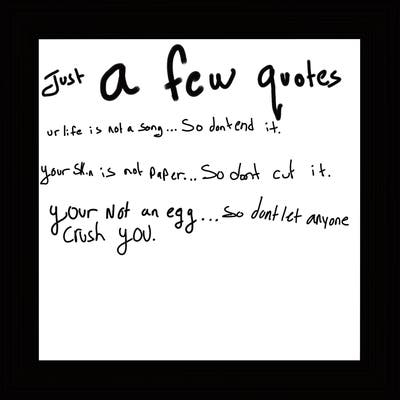 Just a few quotes
ur life is not a song... So dont end it.
your skin is not paper... So dont cut it.
your Not an egg... so dont let anyone
crush you.